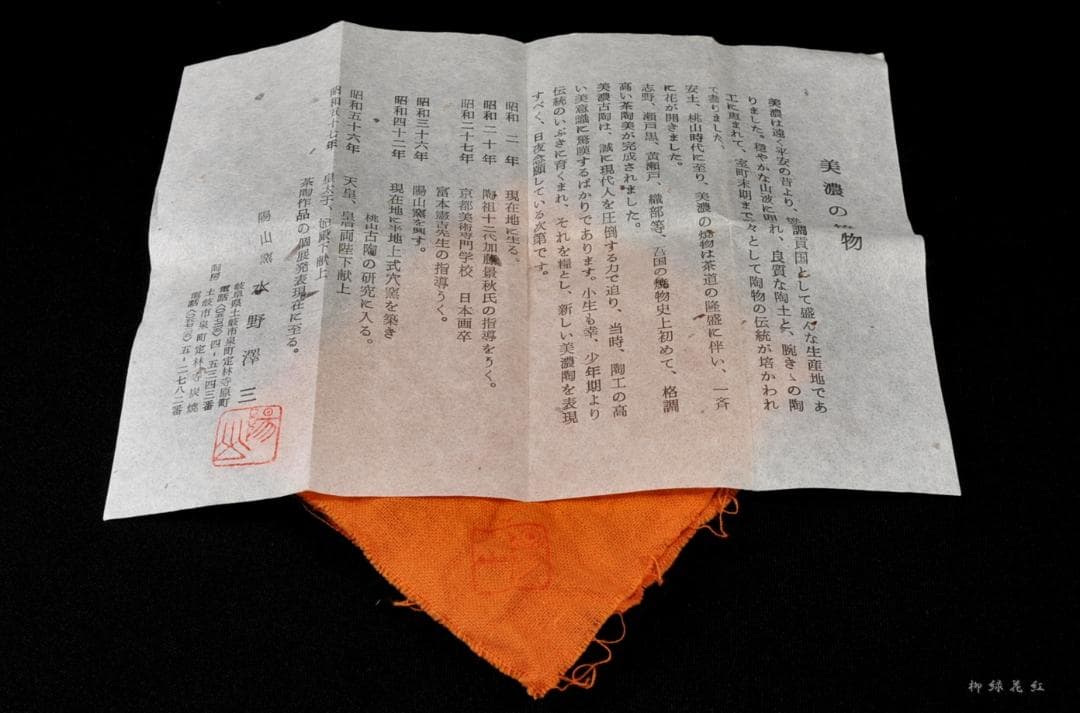 美濃の 物
美濃は遠く平安の昔より、 調貢国として盛んな生産地であ
りました。穏やかな山波に囲れ、良質な陶土と、腕きゝの陶
工に恵まれて、室町末期まで々として陶物の伝統が培かわれ
て参りました。
安土、桃山時代に至り、美濃の焼物は茶道の隆盛に伴い、一斉
に花が開きました。
志野、瀬戸黒、黄瀬戸、織部等、吾国の焼物史上初めて、格調
高い茶陶美が完成されました。
美濃古陶は、誠に現代人を圧倒する力で迫り、当時、陶工の高
い美意識に驚嘆するばかりであります。小生も幸、少年期より
伝統のいぶきに育くまれ、それを糧とし、新しい美濃陶を表現
すべく、日夜念願している次第です。
昭和 二 年 現在地に生る。
昭和二十年 陶祖十二代加藤景秋氏の指導をうく。
昭和二十七年 京都美術専門学校 日本画卒
富本憲吉先生の指導うく。
昭和三十六年 陽山窯を興す。
昭和四十二年 現在地に半地上式穴窯を築き
桃山古陶の研究に入る。
昭和五十六年 天皇、皇后両陛下献上
昭和五十七年 皇太子、妃殿下献上
茶陶作品の個展発表現在に至る。
陽山窯 水野澤三
岐阜県土岐市泉町定林寺原町
電話 四-五三四三番
陶房 土岐市泉町定林寺炭焼
電話 五-二七八二番
陽山
柳緑花紅